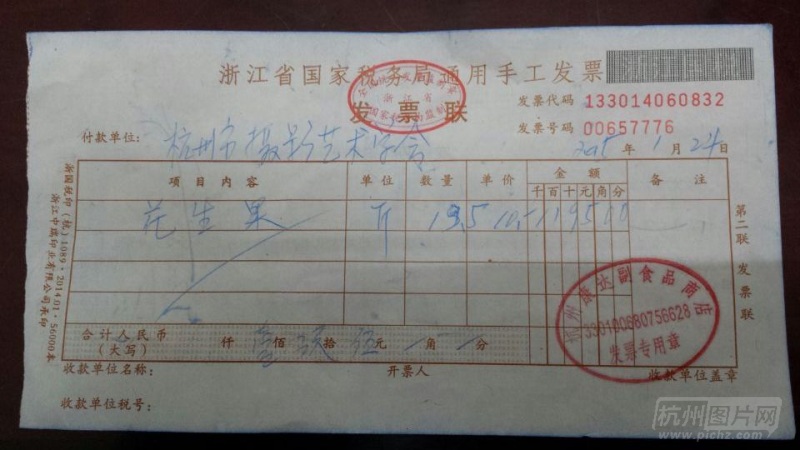 浙江省国家税务局通用手工发票
发票联
浙江省
发票代码 133014060832
发票号码 00657776
付款单位: 杭州市摄影艺术学会
2015 年 1 月 24 日
项目内容 单位 数量 单价 金额 备注
千百十元角分
花生果 斤 19.5 10.- 19500
合计人民币 仟 壹佰 玖拾 伍元 角 分
(大写)
收款单位名称: 开票人 收款单位盖章
收款单位税号:
浙国税印(杭)1089·2014.01·56000本
浙江中瑞印业有限公司承印
第二联 发票联
杭州 达副食品商店
330100680756628
发票专用章
杭州图片网
www.pichz.com